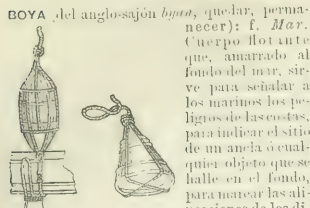 BOYA (del anglo-sajón byan, quedar, perma-
necer): f. Mar.
Cuerpo flotante
que, amarrado al
fondo del mar, sir-
ve para señalar a
los marinos los pe-
ligros de las costas,
para indicar el sitio
de un ancla ó cual-
quier objeto que se
halle en el fondo,
para marcar las ali-